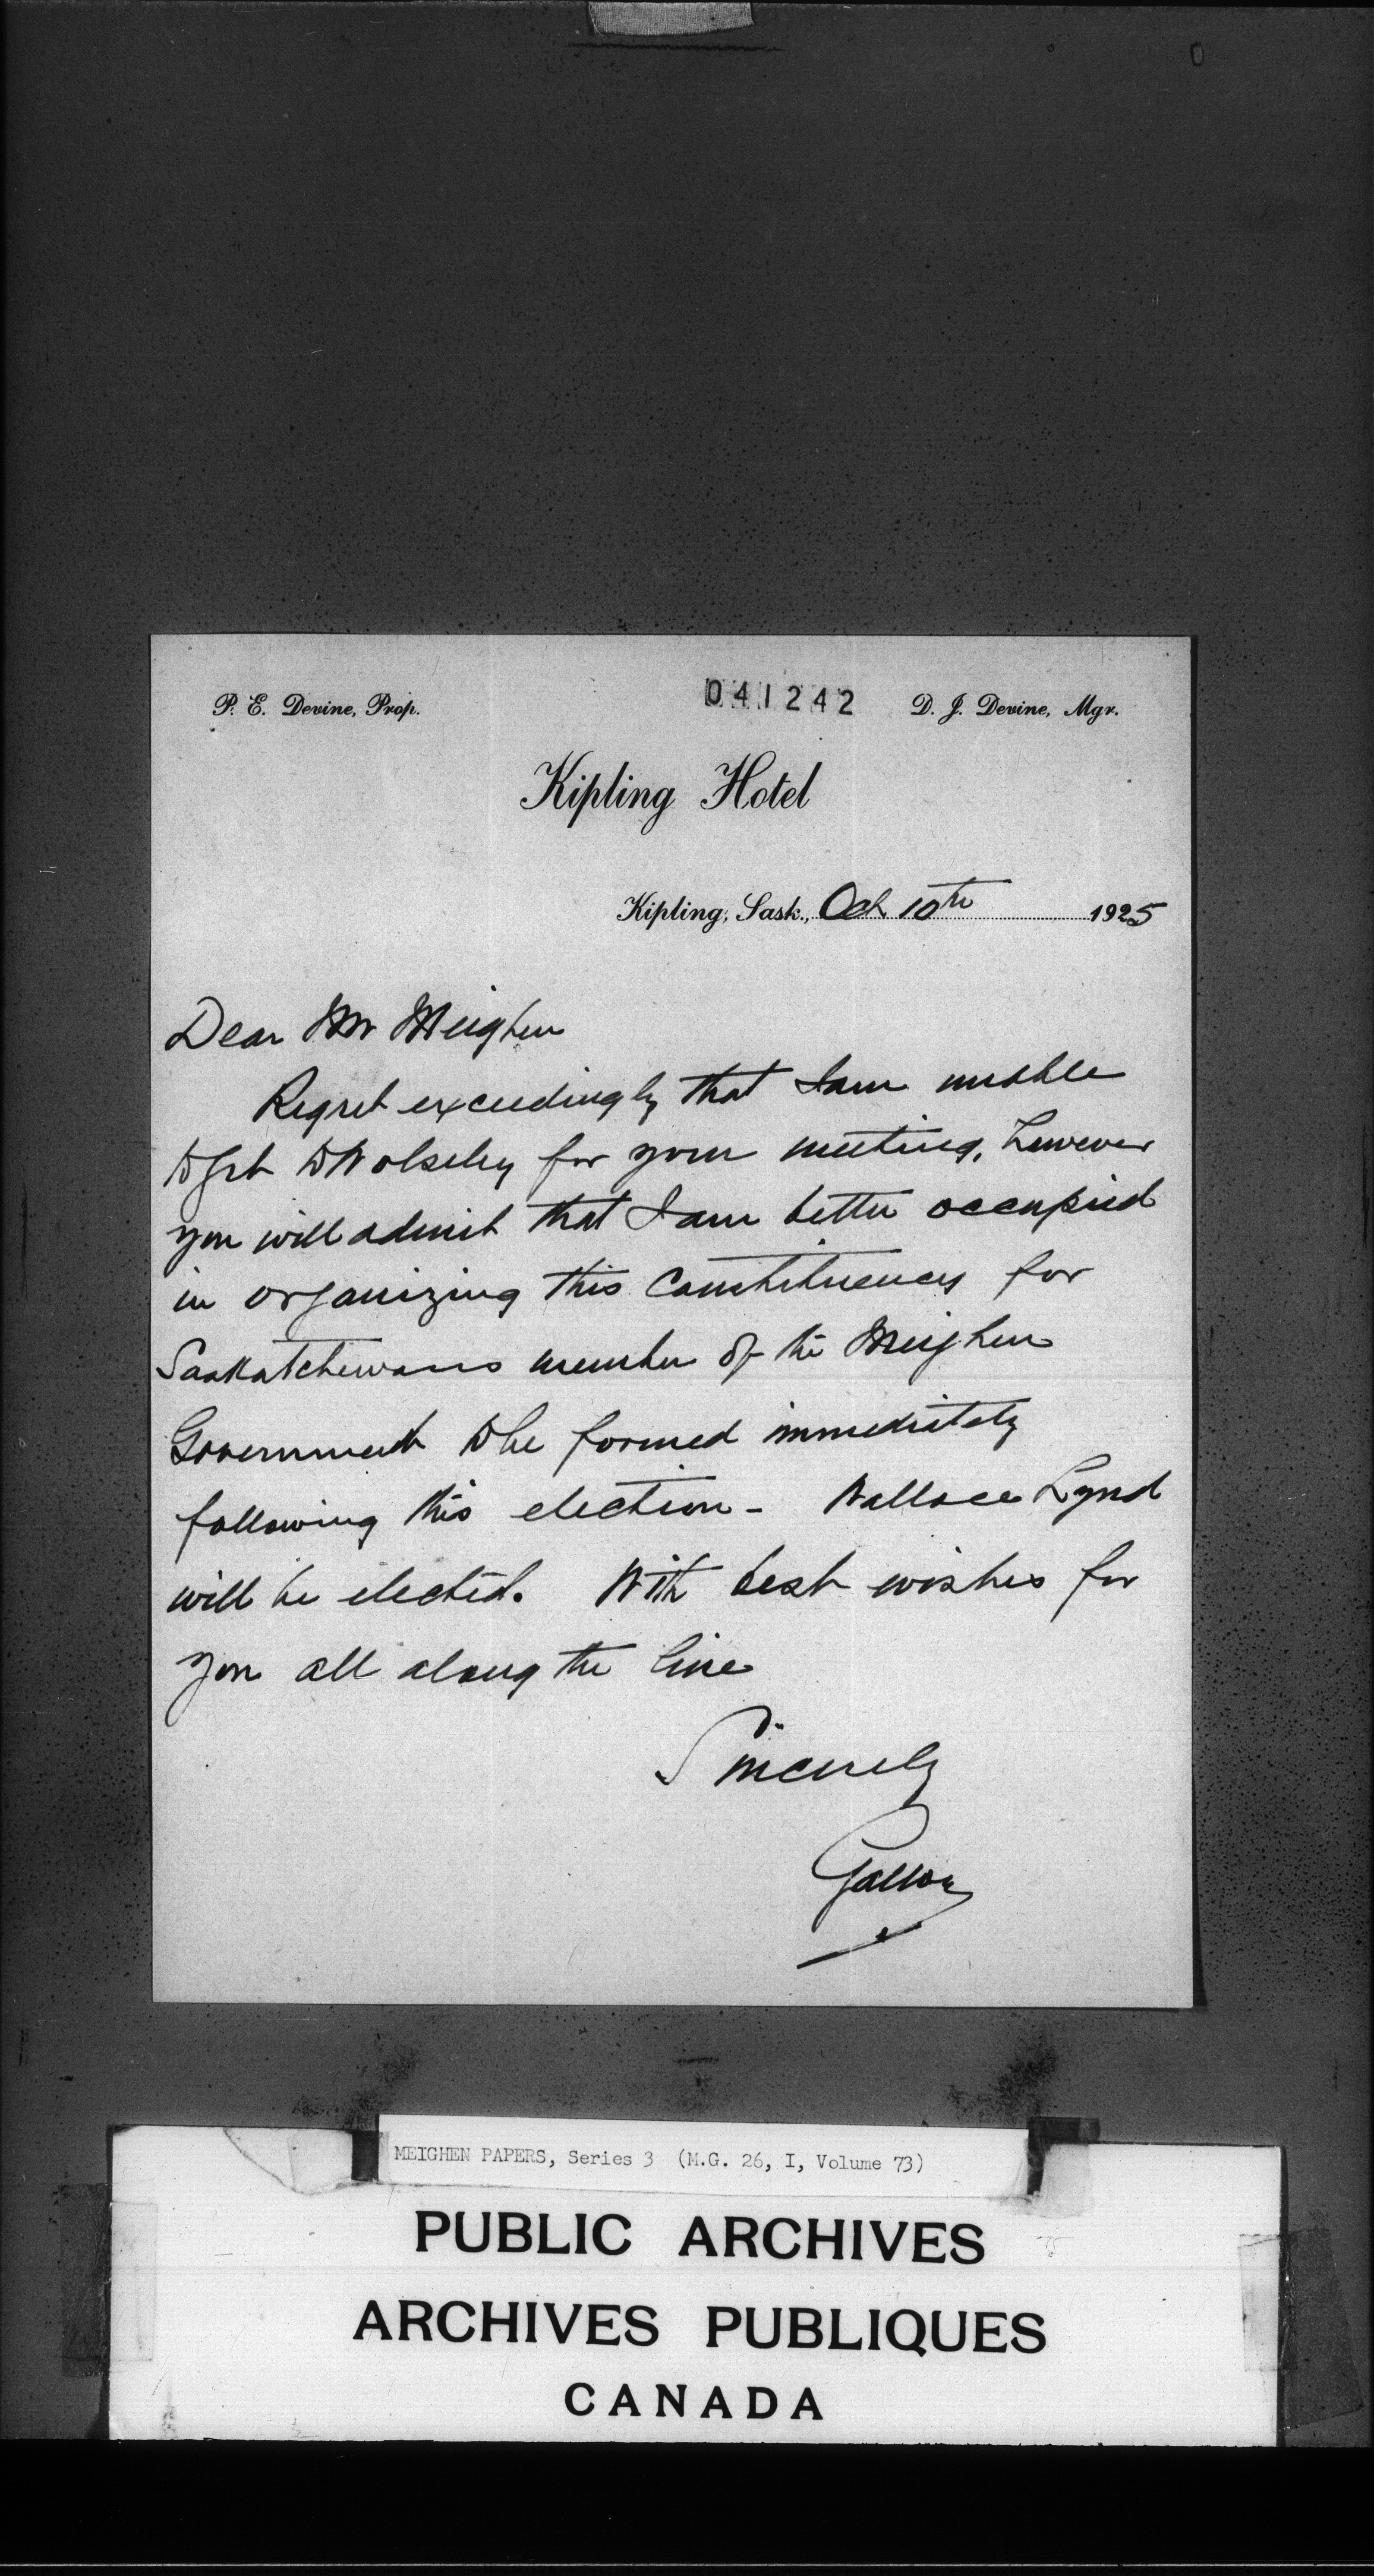 P. E. Devine, Prop.
041242
D. J. Devine, Mgr.
Kipling Hotel
Kipling, Sask., Oct 10th 1925
Dear Mr Meighen
Regret exceedingly that I am unable
to get to Wolseley for your meeting, however
you will admit that I am better occupied
in organizing this Constituency for
Saskatchewans member of the Meighen
Government to be formed immediately
following this election - Wallace Lynd
will be elected. With best wishes for
you all along the line
Sincerely
MEIGHEN PAPERS, Series 3 (M.G. 26, I, Volume 73)
PUBLIC ARCHIVES
ARCHIVES PUBLIQUES
CANADA